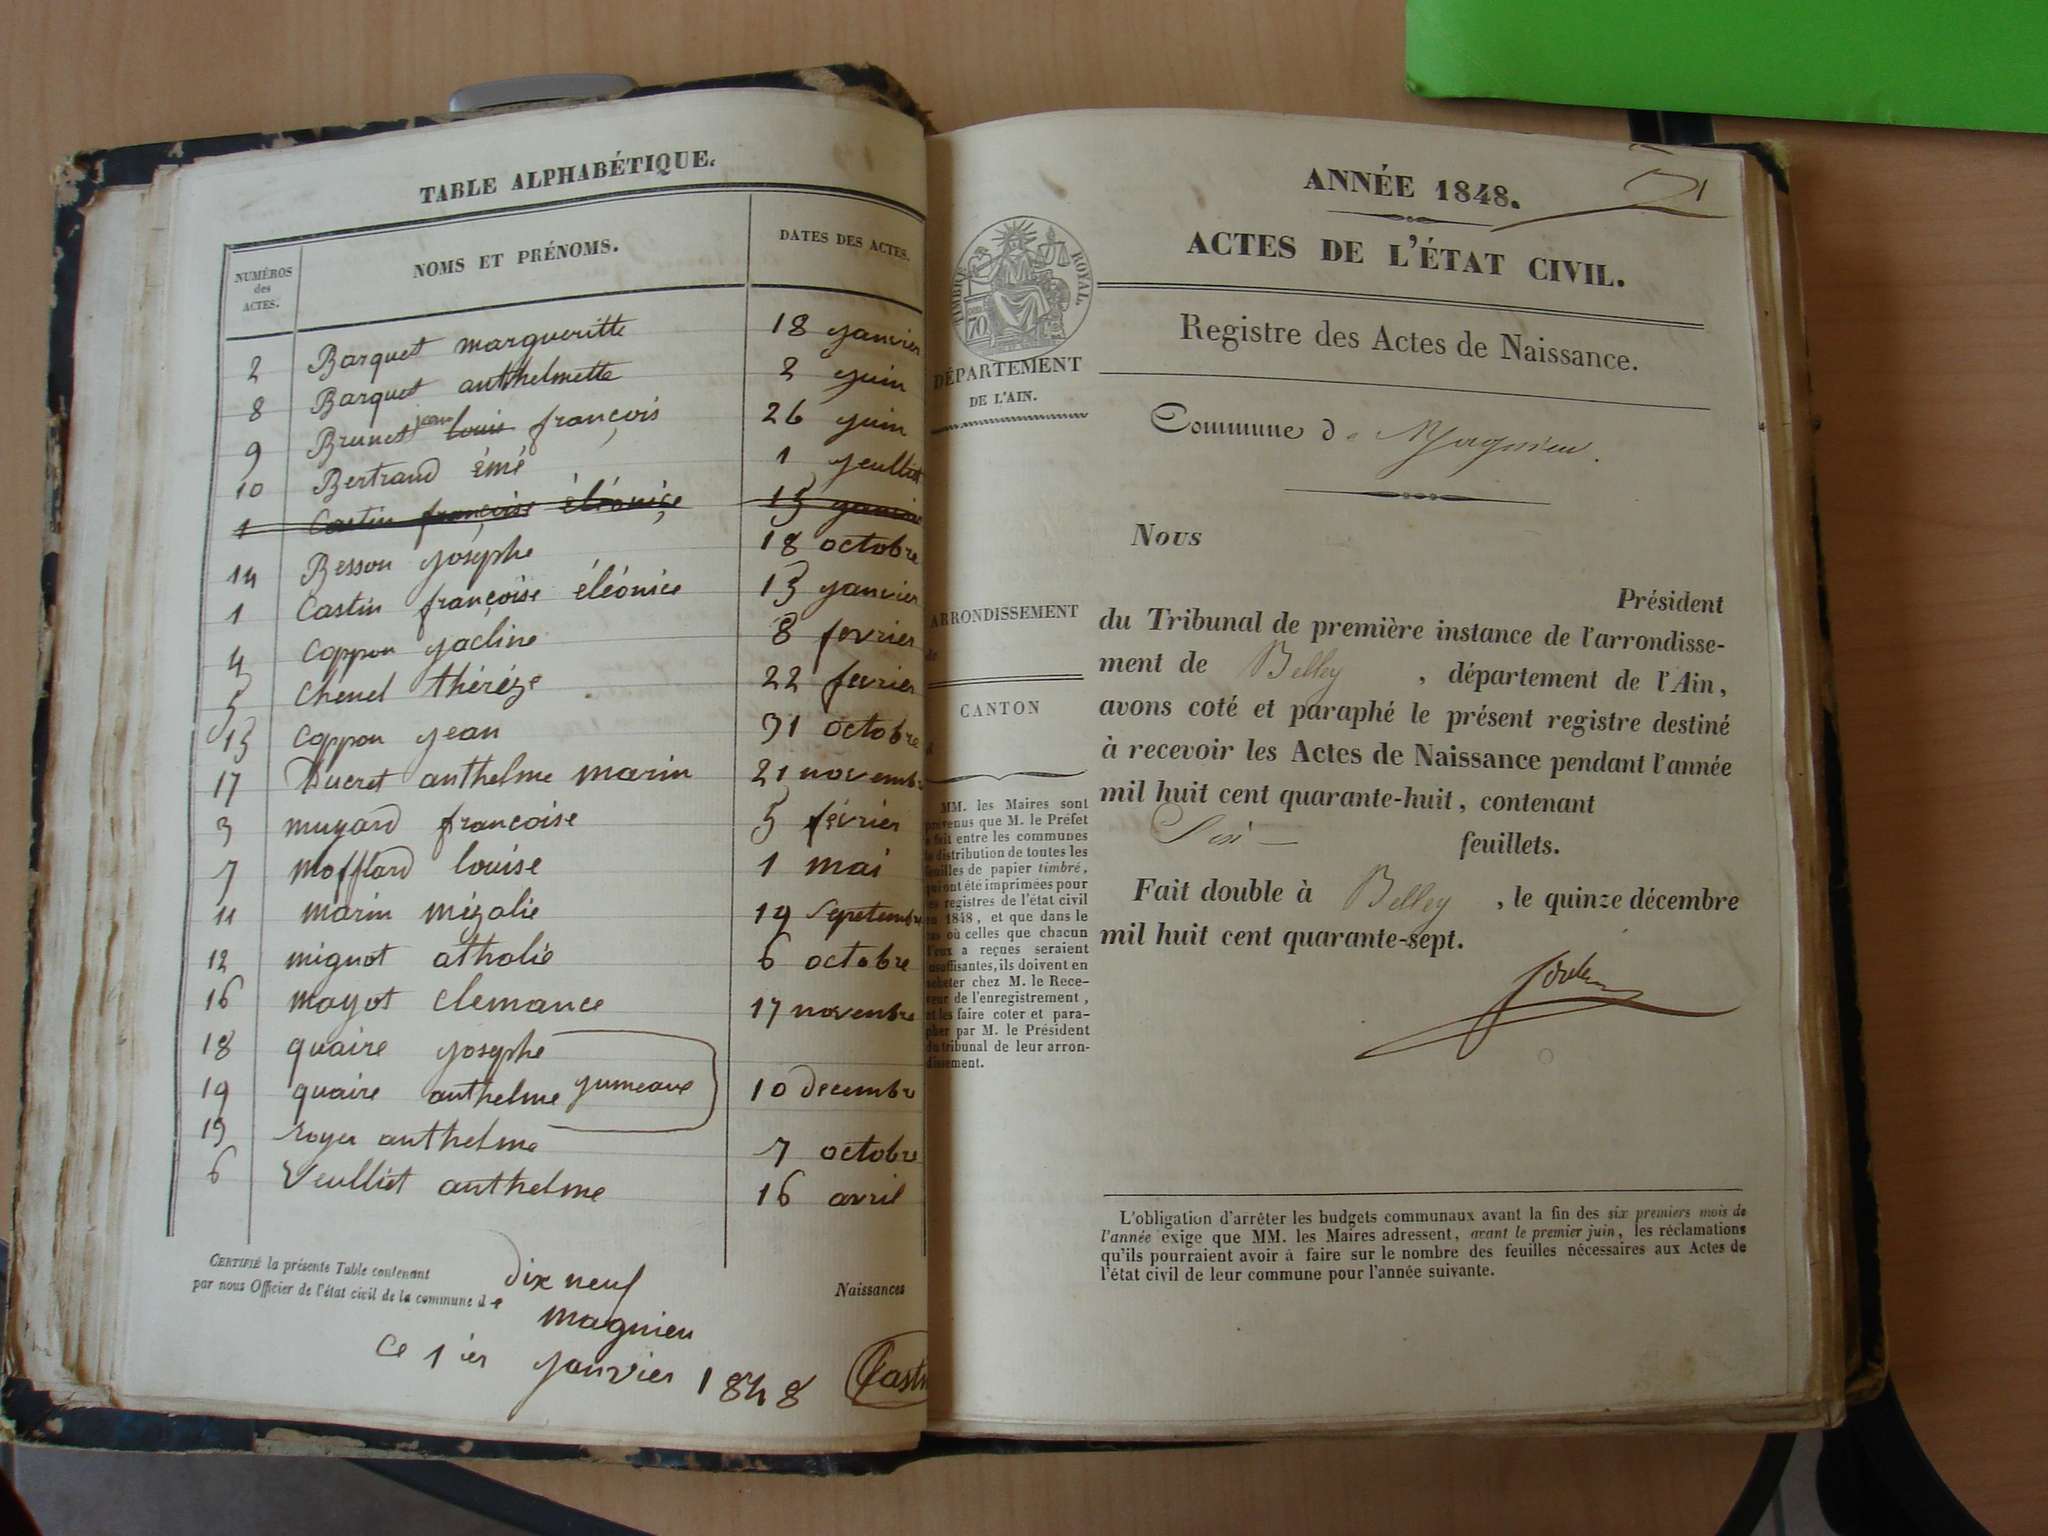 TABLE ALPHABÉTIQUE.
NUMÉROS des ACTES. NOMS ET PRÉNOMS. DATES DES ACTES.
2 Barquet margueritte 18 janvier
8 Barquet anthelmette 2 juin
9 Brunet jean louis françois 26 juin
10 Bertrand émé 1 jeulliet
1 Castin françoise éléonice 13 janvier
14 Besson josephe 18 octobre
1 Castin françoise éléonice 13 janvier
4 Coppon jacline 8 fevrier
5 Chenel thérèze 22 fevrier
13 Coppon jean 31 octobre
17 Ducret anthelme marin 21 novembre
3 mugard francoise 5 février
7 moffard louise 1 mai
11 marin mézalie 19 septembre
12 mignot atholié 6 octobre
16 mayot clemance 17 novembre
18 quaire josephe
19 quaire anthelme jumeaux 10 decembre
15 royer anthelme 7 octobre
6 Veulliet anthelme 16 avril
CERTIFIÉ la présente Table contenant dix neuf Naissances
par nous Officier de l'état civil de la commune de magnieu
ce 1ier janvier 1848
ANNÉE 1848.
1
ACTES DE L'ÉTAT CIVIL.
TIMBRE ROYAL
70
Registre des Actes de Naissance.
DÉPARTEMENT
DE L'AIN.
Commune de Magnieu.
ARRONDISSEMENT
de
CANTON
d
MM. les Maires sont
prévenus que M. le Préfet
a fait entre les communes
la distribution de toutes les
feuilles de papier timbré,
qui ont été imprimées pour
les registres de l'état civil
en 1848, et que dans le
cas où celles que chacun
d'eux a reçues seraient
insuffisantes, ils doivent en
acheter chez M. le Rece-
veur de l'enregistrement,
et les faire coter et para-
pher par M. le Président
du tribunal de leur arron-
dissement.
Nous
Président
du Tribunal de première instance de l'arrondisse-
ment de Belley, département de l'Ain,
avons coté et paraphé le présent registre destiné
à recevoir les Actes de Naissance pendant l'année
mil huit cent quarante-huit, contenant
Six feuillets.
Fait double à Belley, le quinze décembre
mil huit cent quarante-sept.
L'obligation d'arrêter les budgets communaux avant la fin des six premiers mois de
l'année exige que MM. les Maires adressent, avant le premier juin, les réclamations
qu'ils pourraient avoir à faire sur le nombre des feuilles nécessaires aux Actes de
l'état civil de leur commune pour l'année suivante.